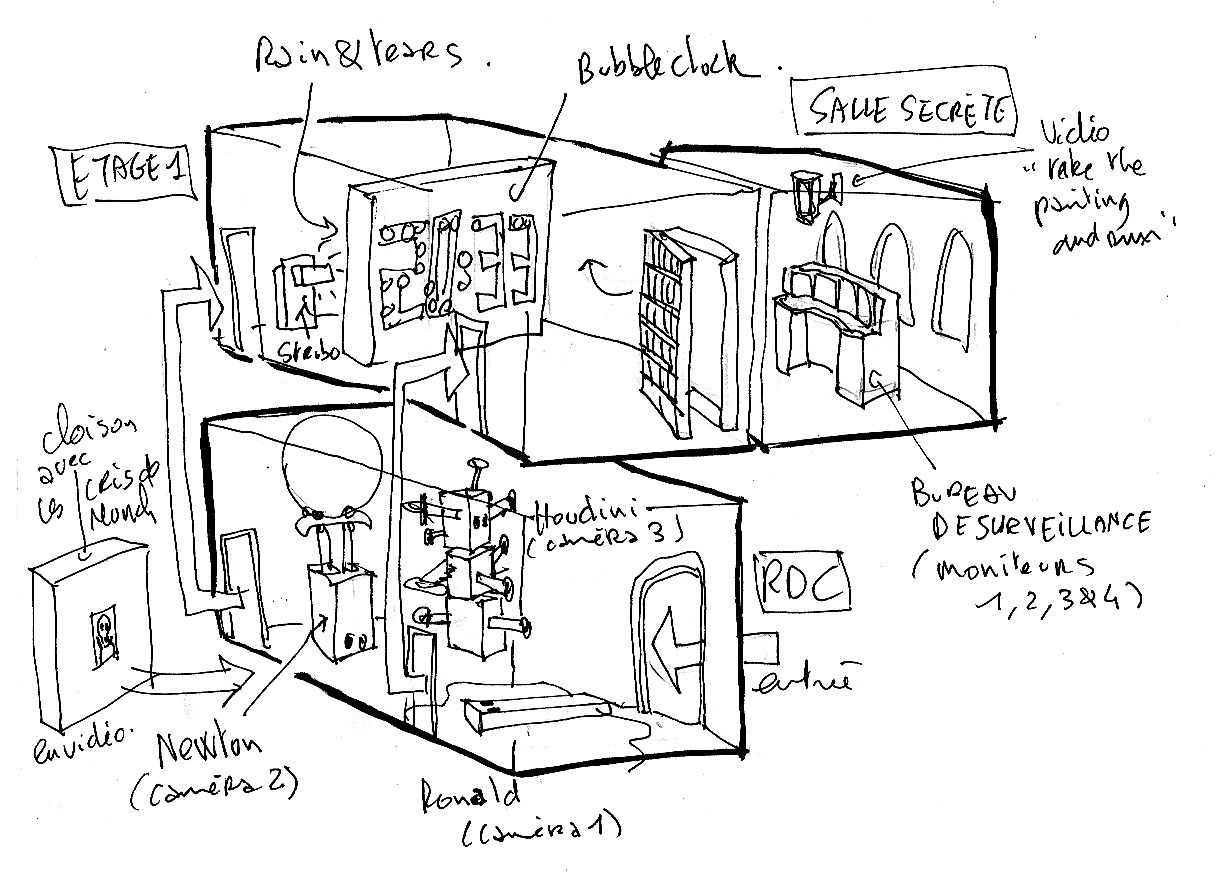 Rain & tears.
Bubbleclock.
SALLE SECRÈTE
ETAGE 1
Vidéo
"take the
painting
and run"
Strobo
cloison
avec
les cris de
Munch
Houdini
(caméra 3)
BUREAU
DE SURVEILLANCE
(moniteurs
1, 2, 3 & 4)
RDC
entrée
en vidéo.
Newton
(caméra 2)
Ronald
(caméra 1)